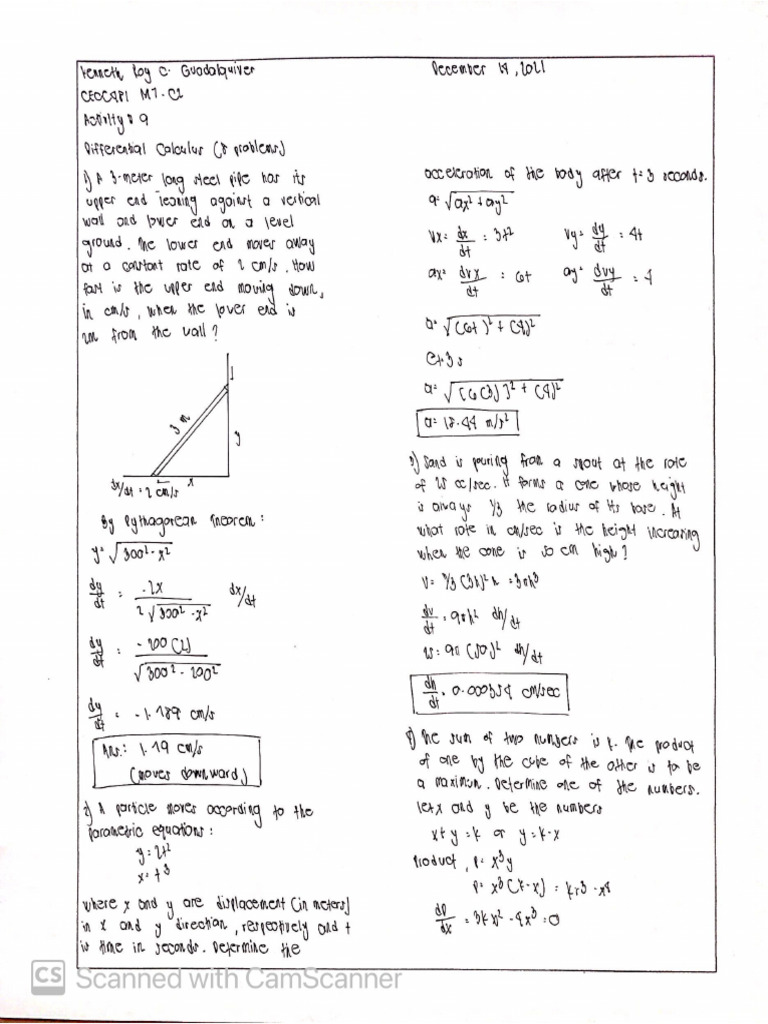 Kenneth Roy C. Guadalquiver
CEOCAP1 M7-C2
Activity # 9
Differential Calculus (5 problems)
1) A 3-meter long steel pipe has its
upper end leaning against a vertical
wall and lower end on a level
ground. The lower end moves away
at a constant rate of 2 cm/s. How
fast is the upper end moving down,
in cm/s, when the lower end is
2m from the wall?
3 m
y
x
dx/dt = 2 cm/s
By Pythagorean Theorem:
y = √300² - x²
dy/dt = -2x / 2√300² - x² dx/dt
dy/dt = -200(2) / √300² - 200²
dy/dt = -1.789 cm/s
Ans.: 1.79 cm/s
(moves downward)
2) A particle moves according to the
parametric equations:
y = 2t²
x = t³
where x and y are displacement (in meters)
in x and y direction, respectively and t
is time in seconds. Determine the
December 19, 2021
acceleration of the body after t=3 seconds.
a = √ax² + ay²
Vx = dx/dt = 3t² Vy = dy/dt = 4t
ax = dvx/dt = 6t ay = dvy/dt = 4
a = √(6t)² + (4)²
@t=3s
a = √(6(3))² + (4)²
a = 18.44 m/s²
3) Sand is pouring from a spout at the rate
of 25 cc/sec. It forms a cone whose height
is always 1/3 the radius of its base. At
what rate in cm/sec is the height increasing
when the cone is 50 cm high?
V = π/3 (3h)² h = 3πh³
dv/dt = 9πh² dh/dt
25 = 9π (50)² dh/dt
dh/dt = 0.000354 cm/sec
4) The sum of two numbers is k. The product
of one by the cube of the other is to be
a maximum. Determine one of the numbers.
let x and y be the numbers
x + y = k or y = k - x
Product, P = x³y
P = x³(k-x) = kx³ - x⁴
dP/dx = 3kx² - 4x³ = 0
CS Scanned with CamScanner